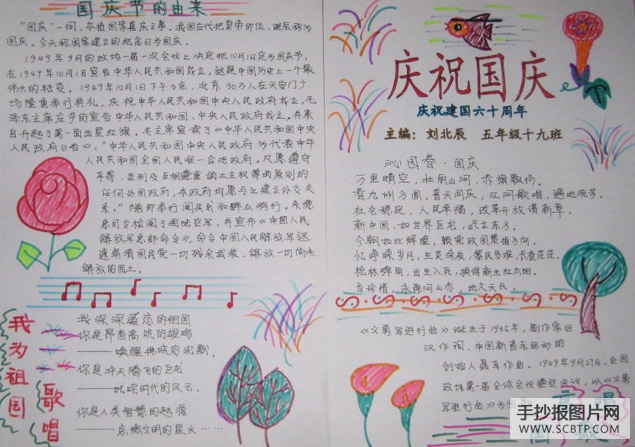 国庆节的由来
"国庆"一词，本指国家喜庆之事，我国古代把皇帝即位、诞辰称为
国庆。今天称国家建立的纪念日为国庆。
1949年9月的政协一届一次会议上决定把10月1日定为国庆节，
在1949年10月1日宣告中华人民共和国成立，这是中国历史上一个最
伟大的转变。1949年10月1日下午3点，北京30万人在天安门广
场隆重举行典礼，庆祝中华人民共和国中央人民政府成立。毛
泽东主席庄严的宣告中华人民共和国、中央人民政府成立，并亲
自升起了第一面五星红旗。毛主席宣读了《中华人民共和国中央
人民政府公告》。"中华人民共和国中央人民政府为代表中华
人民共和国全国人民唯一合法政府，凡愿遵守
平等、互利及互相尊重领土主权等原则的
任何外国政府，本政府均愿与之建立外交关
系。"随即举行阅兵式和群众游行。朱德
总司令检阅了海陆空军，并宣布《中国人民
解放军总部命令》，命令中国人民解放军迅
速肃清国民党一切残余武装，解放一切尚未
解放的国土。
我为祖国
歌唱
我深深爱恋的祖国
你是昂首高吭的雄鸡
——唤醒拂晓的沉默，
你是冲天腾飞的巨龙
——叱咤时代的风云，
你是人类智慧的起源
——点燃文明的星火……
庆祝国庆
庆祝建国六十周年
主编：刘北辰 五年级十九班
沁园春·国庆
万里晴空，壮丽山河，赤旗飘扬。
看九州方圆，普天同庆；江河歌唱，遍地流芳。
社会稳定，人民幸福，改革开放谱新章。
新中国，如世界巨龙，屹立东方。
今朝如此辉煌，赖党政国策指方向。
忆峥嵘岁月，生灵涂炭；
枪林弹雨，出生入死，换得新生红太阳。
当珍惜，永葆河山赤，地久天长。
《义勇军进行曲》诞生于1935年，剧作家田
汉作词，中国新音乐运动的
创始人聂耳作曲。1949年9月27日，全国
政协第一届全体会议
手抄报图片网
WWW.SCBTP.COM